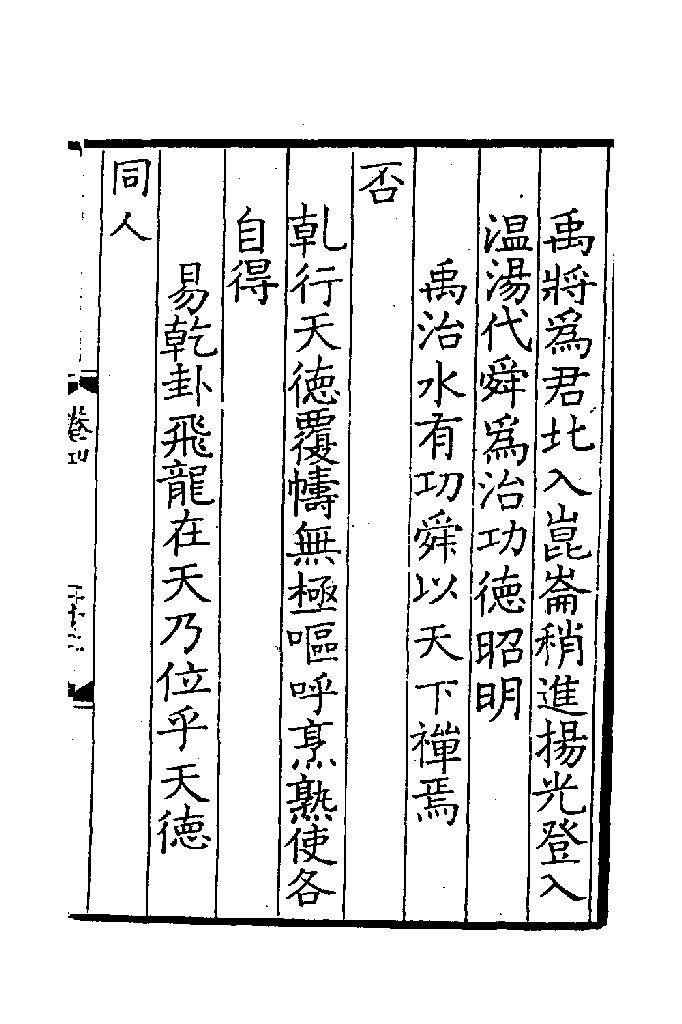 禹將爲君北入崑崙稍進揚光登入
温湯代舜爲治功徳昭明
禹治水有功舜以天下禪焉
否
乹行天徳覆幬無極嘔呼烹熟使各
自得
易乾卦飛龍在天乃位乎天徳
同人
卷四